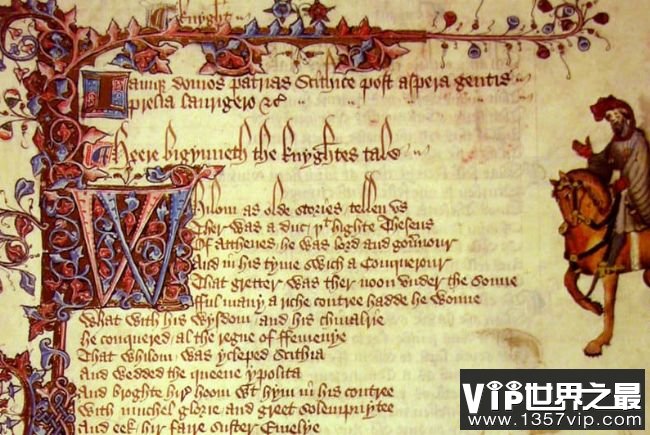 Knyght
Iamque domos patrias Scithice post aspera gentis
prelia laurigero &c
Heere bigynneth the knyghtes tale
Whilom as olde stories tellen vs
Ther was a duc þt highte Theseus
Of Atthenes he was lord and gouernour
And in his tyme swich a Conquerour
That gretter was ther noon vnder the sonne
fful many a riche contree hadde he wonne
What with his wysdom and his chiualrie
he conquered al the regne of ffemenye
That whilom was ycleped Scithia
And wedded the queene ypolita
And broghte hir hoom wt hym in his contree
With muchel glorie and greet solempnytee
And eek hir faire suster Emelye
VIP世界之最
www.1357vip.com